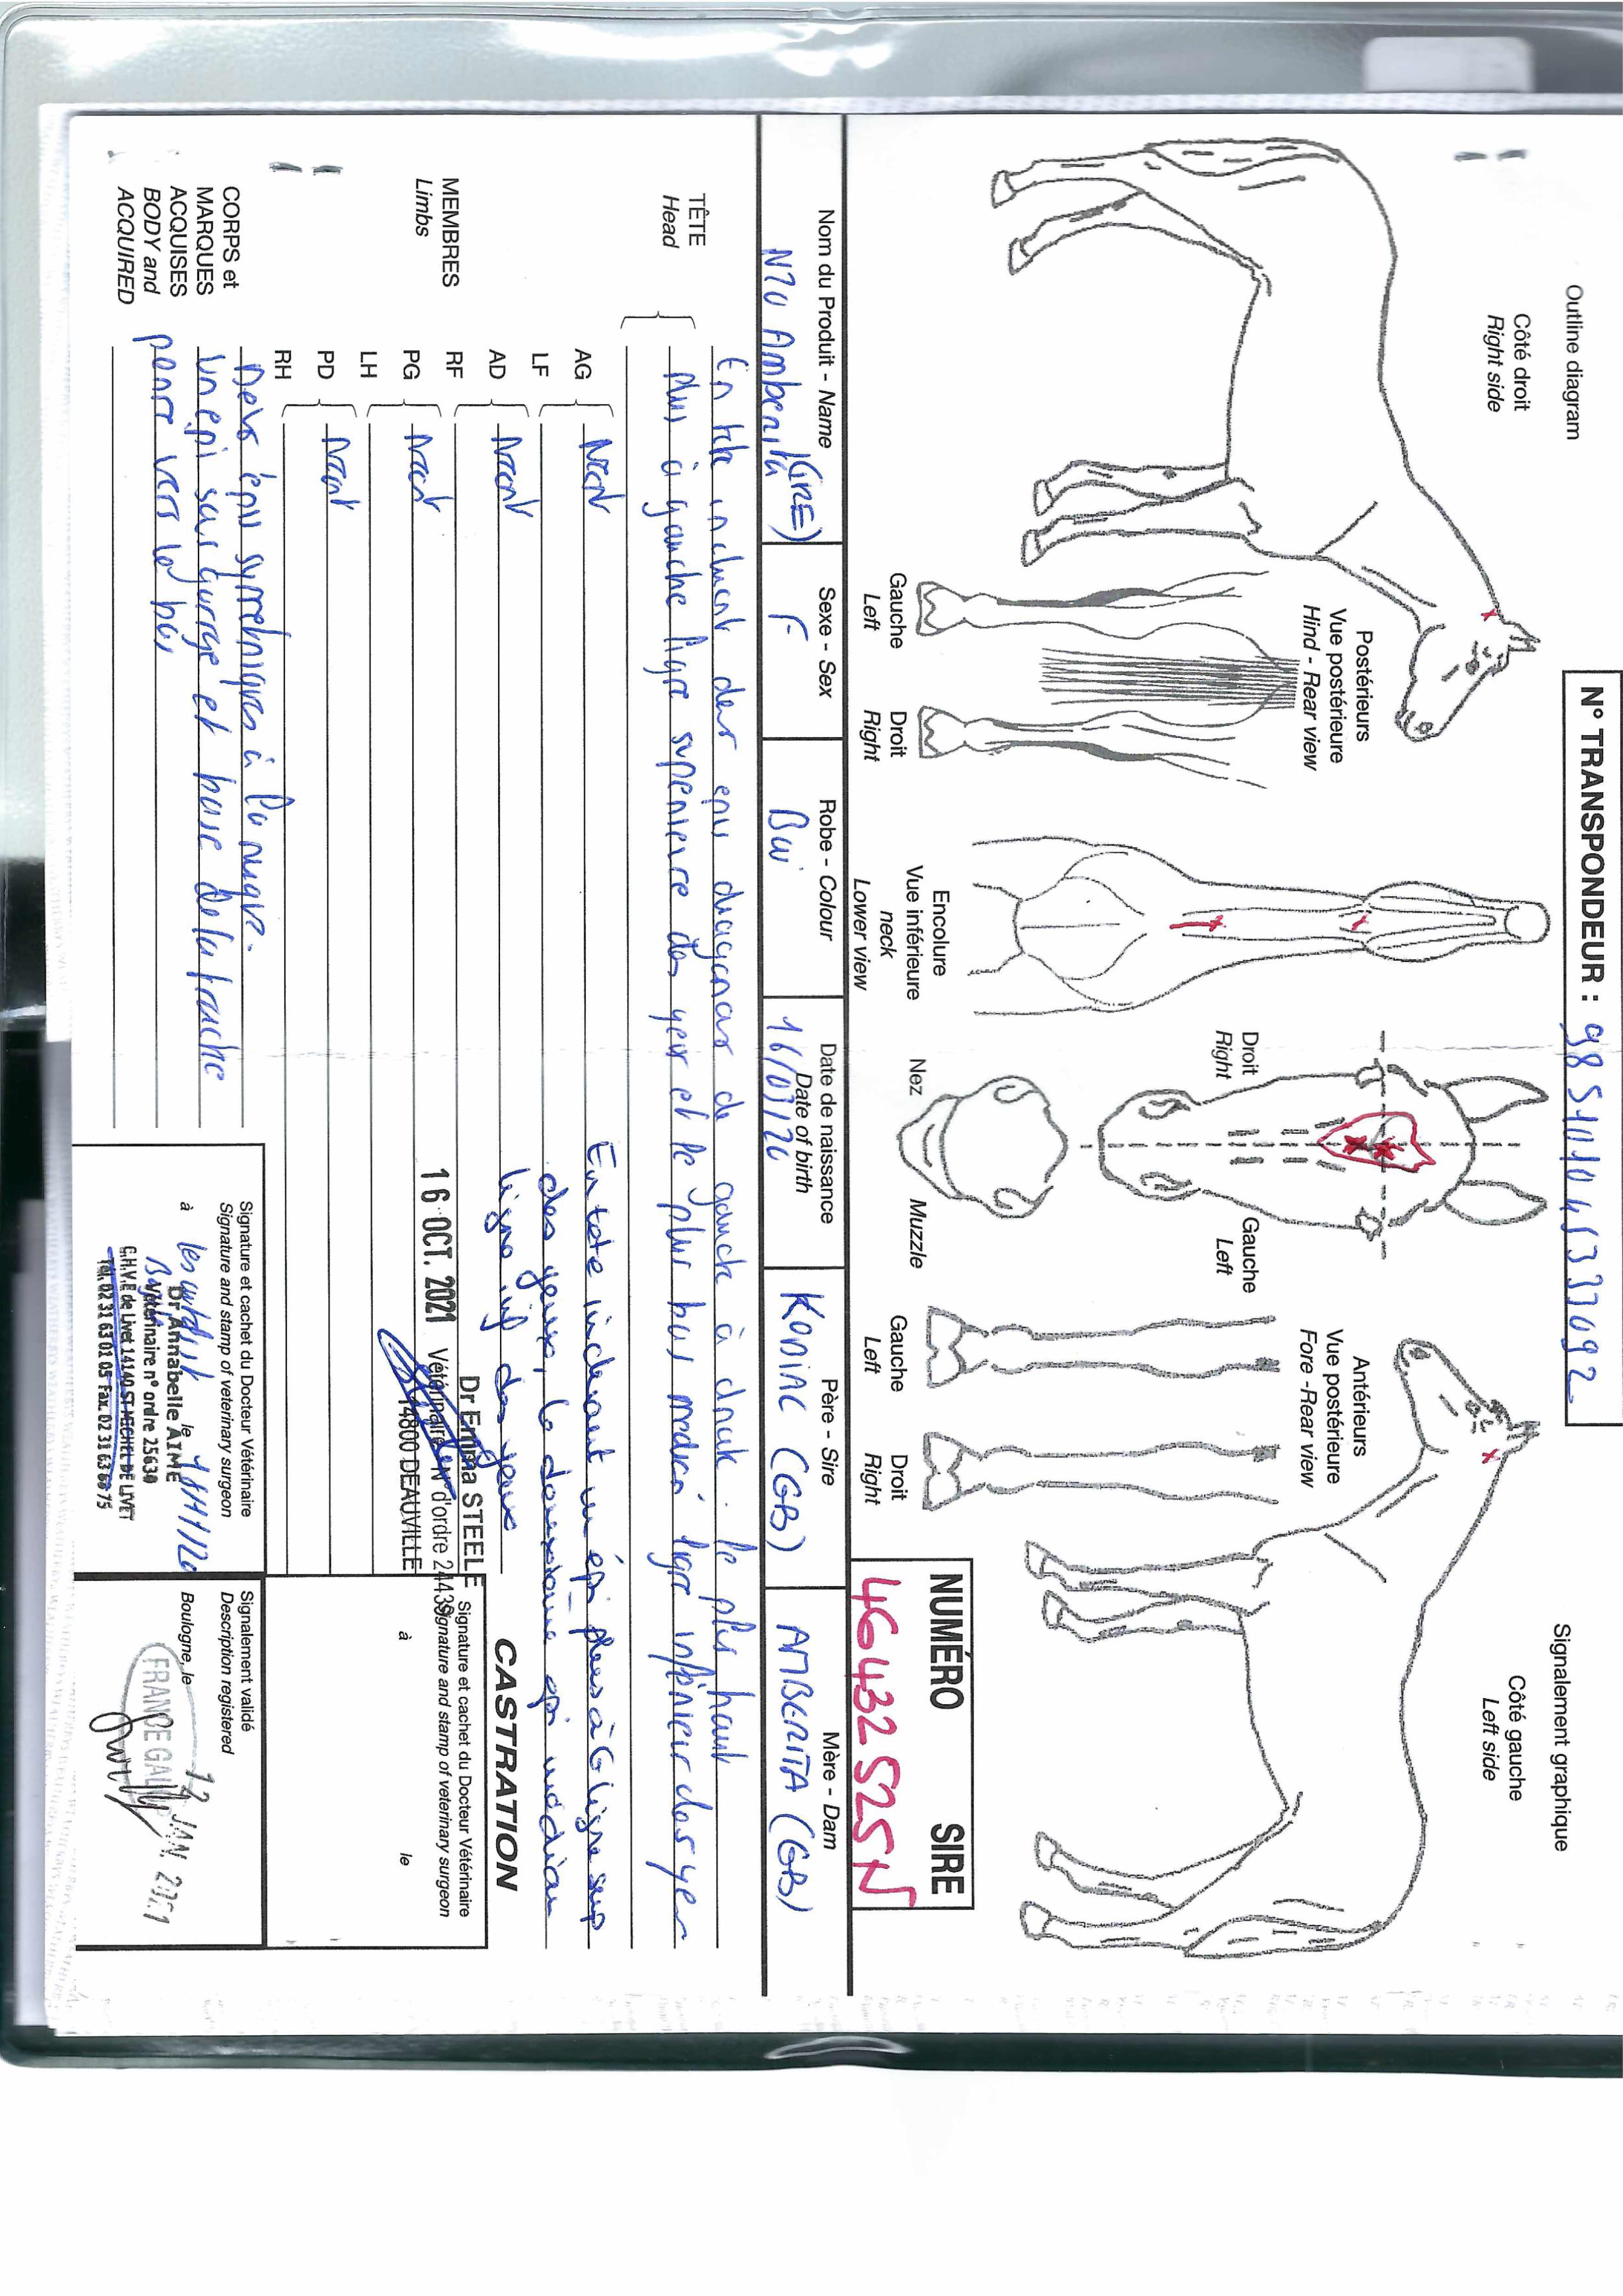 Outline diagram
N° TRANSPONDEUR : 985101045333092
Signalement graphique
Côté droit
Right side
Postérieurs
Vue postérieure
Hind - Rear view
Gauche
Left
Droit
Right
Encolure
Vue inférieure
neck
Lower view
Droit
Right
Gauche
Left
Nez
Muzzle
Antérieurs
Vue postérieure
Fore - Rear view
Gauche
Left
Droit
Right
Côté gauche
Left side
NUMÉRO SIRE
46432525N
Nom du Produit - Name
N20 Amberita (IRE)
Sexe - Sex
F
Robe - Colour
Bai
Date de naissance
Date of birth
16/03/20
Père - Sire
KODIAC (GB)
Mère - Dam
AMBERITA (GB)
TÊTE
Head
En tete incluant deux epis diagonaux de gauche à droite. le plus haut
plus à gauche ligne superieure des yeux et le plus bas median ligne inférieur des yeux
En tête incluant un épi plus à G ligne sup
des yeux, le deuxième épi médian
ligne inf des yeux
MEMBRES
Limbs
AG
LF
Neant
AD
RF
Neant
PG
LH
Neant
PD
RH
Neant
16 OCT. 2021
Dr Emma STEELE
Vétérinaire N° d'ordre 24439
14800 DEAUVILLE
CASTRATION
Signature et cachet du Docteur Vétérinaire
Signature and stamp of veterinary surgeon
à le
CORPS et
MARQUES
ACQUISES
BODY and
ACQUIRED
Deux épis symetriques à la nuque.
Un epi sur gorge et base de la trachée
penne vers le bas
Signature et cachet du Docteur Vétérinaire
Signature and stamp of veterinary surgeon
à le
Dr Annabelle AIME
Vétérinaire n° ordre 25630
C.H.V.E de Livet 14140 ST MICHEL DE LIVET
Tél. 02 31 63 01 05 Fax. 02 31 63 68 75
Signalement validé
Description registered
Boulogne, le
12 JAN. 2021
FRANCE GALOP